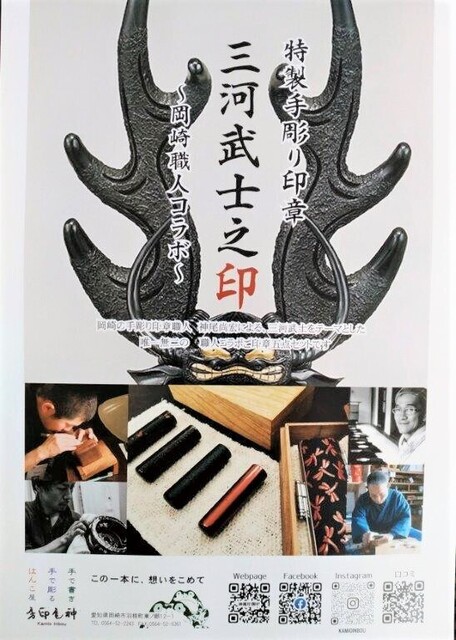 特製手彫り印章
三河武士之印
～岡崎職人コラボ～
岡崎の手彫り印章職人　神尾尚宏による、三河武士をテーマとした
唯一無二の　職人コラボご印章五点セットです
手で書き
手で彫る
はんこ屋
この一本に、想いをこめて
Webpage
Facebook
Instagram
口コミ
KAMIOINBOU